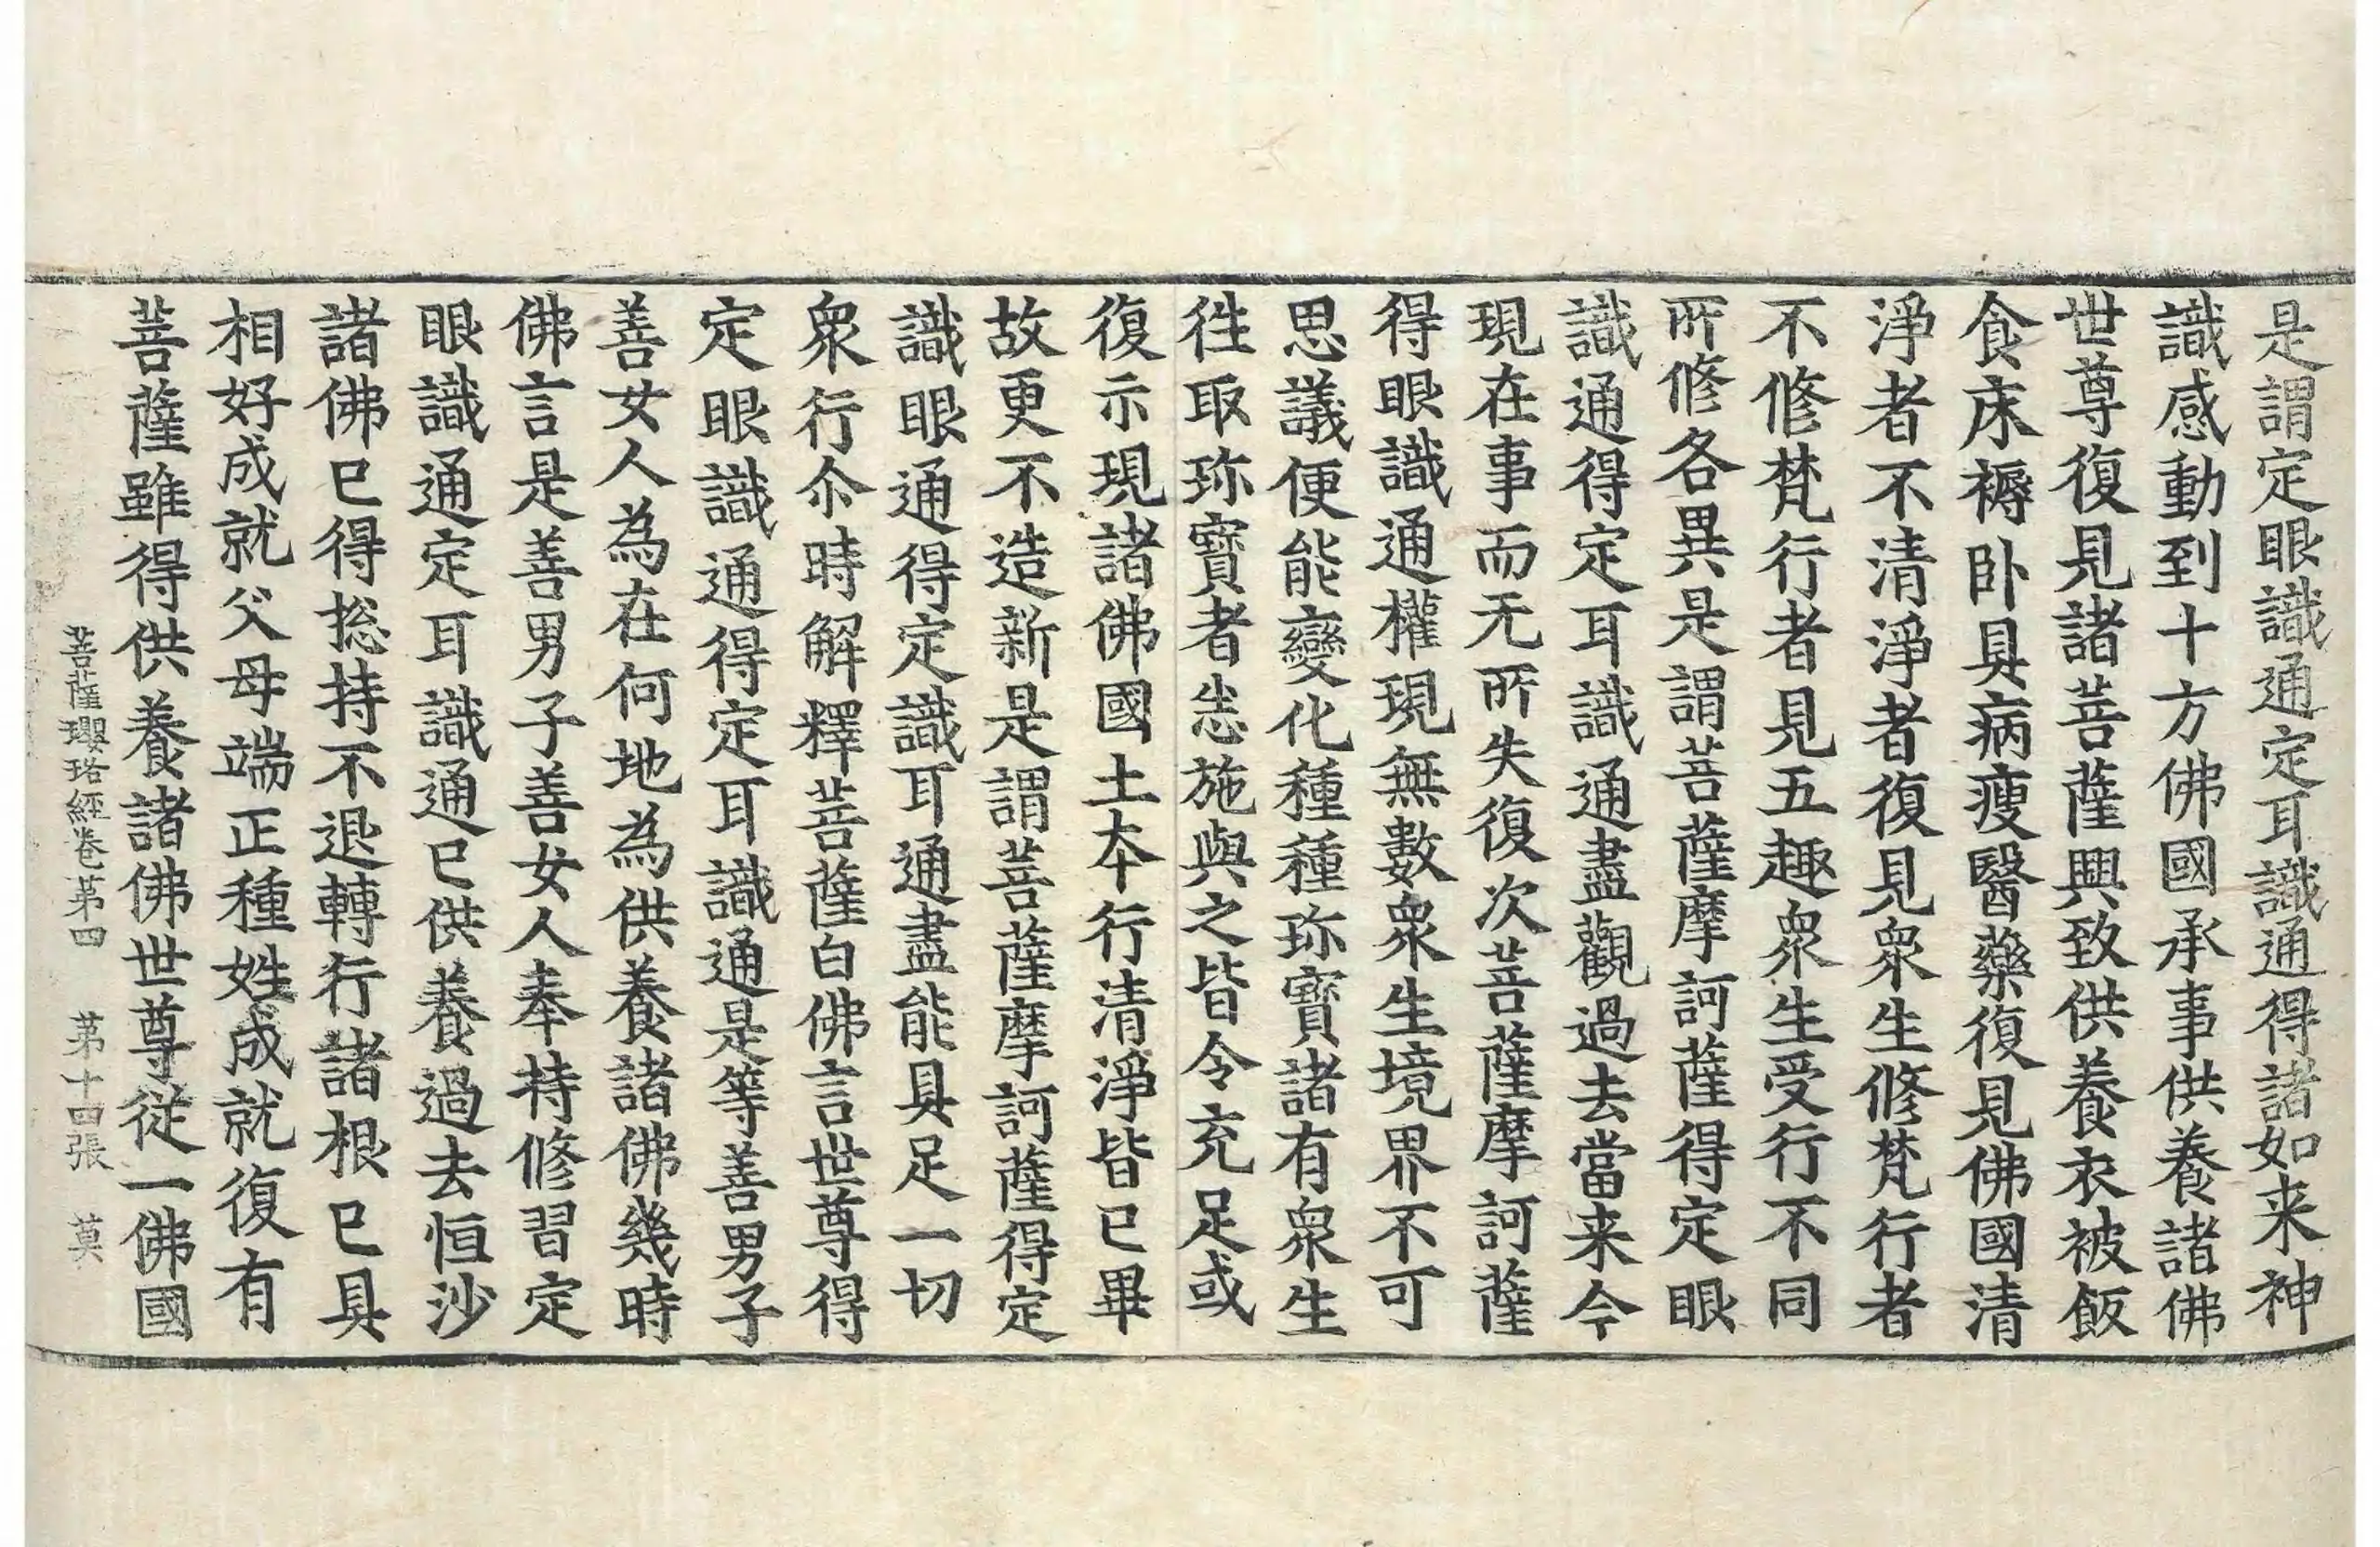 是謂定眼識通定耳識通得諸如来神
識感動到十方佛國承事供養諸佛
世尊復見諸菩薩興致供養衣被飯
食床褥卧具病瘦醫藥復見佛國清
淨者不清淨者復見衆生修梵行者
不修梵行者見五趣衆生受行不同
所修各異是謂菩薩摩訶薩得定眼
識通得定耳識通盡觀過去當来今
現在事而无所失復次菩薩摩訶薩
得眼識通權現無數衆生境界不可
思議便能變化種種珎寶諸有衆生
徃取珎寶者恣施與之皆令充足或
復示現諸佛國土夲行清淨皆已畢
故更不造新是謂菩薩摩訶薩得定
識眼通得定識耳通盡能具足一切
衆行尒時解釋菩薩白佛言世尊得
定眼識通得定耳識通是等善男子
善女人為在何地為供養諸佛幾時
佛言是善男子善女人奉持修習定
眼識通定耳識通已供養過去恒沙
諸佛已得捴持不退轉行諸根已具
相好成就父母端正種姓成就復有
菩薩雖得供養諸佛世尊從一佛國
菩薩瓔珞經卷苐四 苐十四張 莫